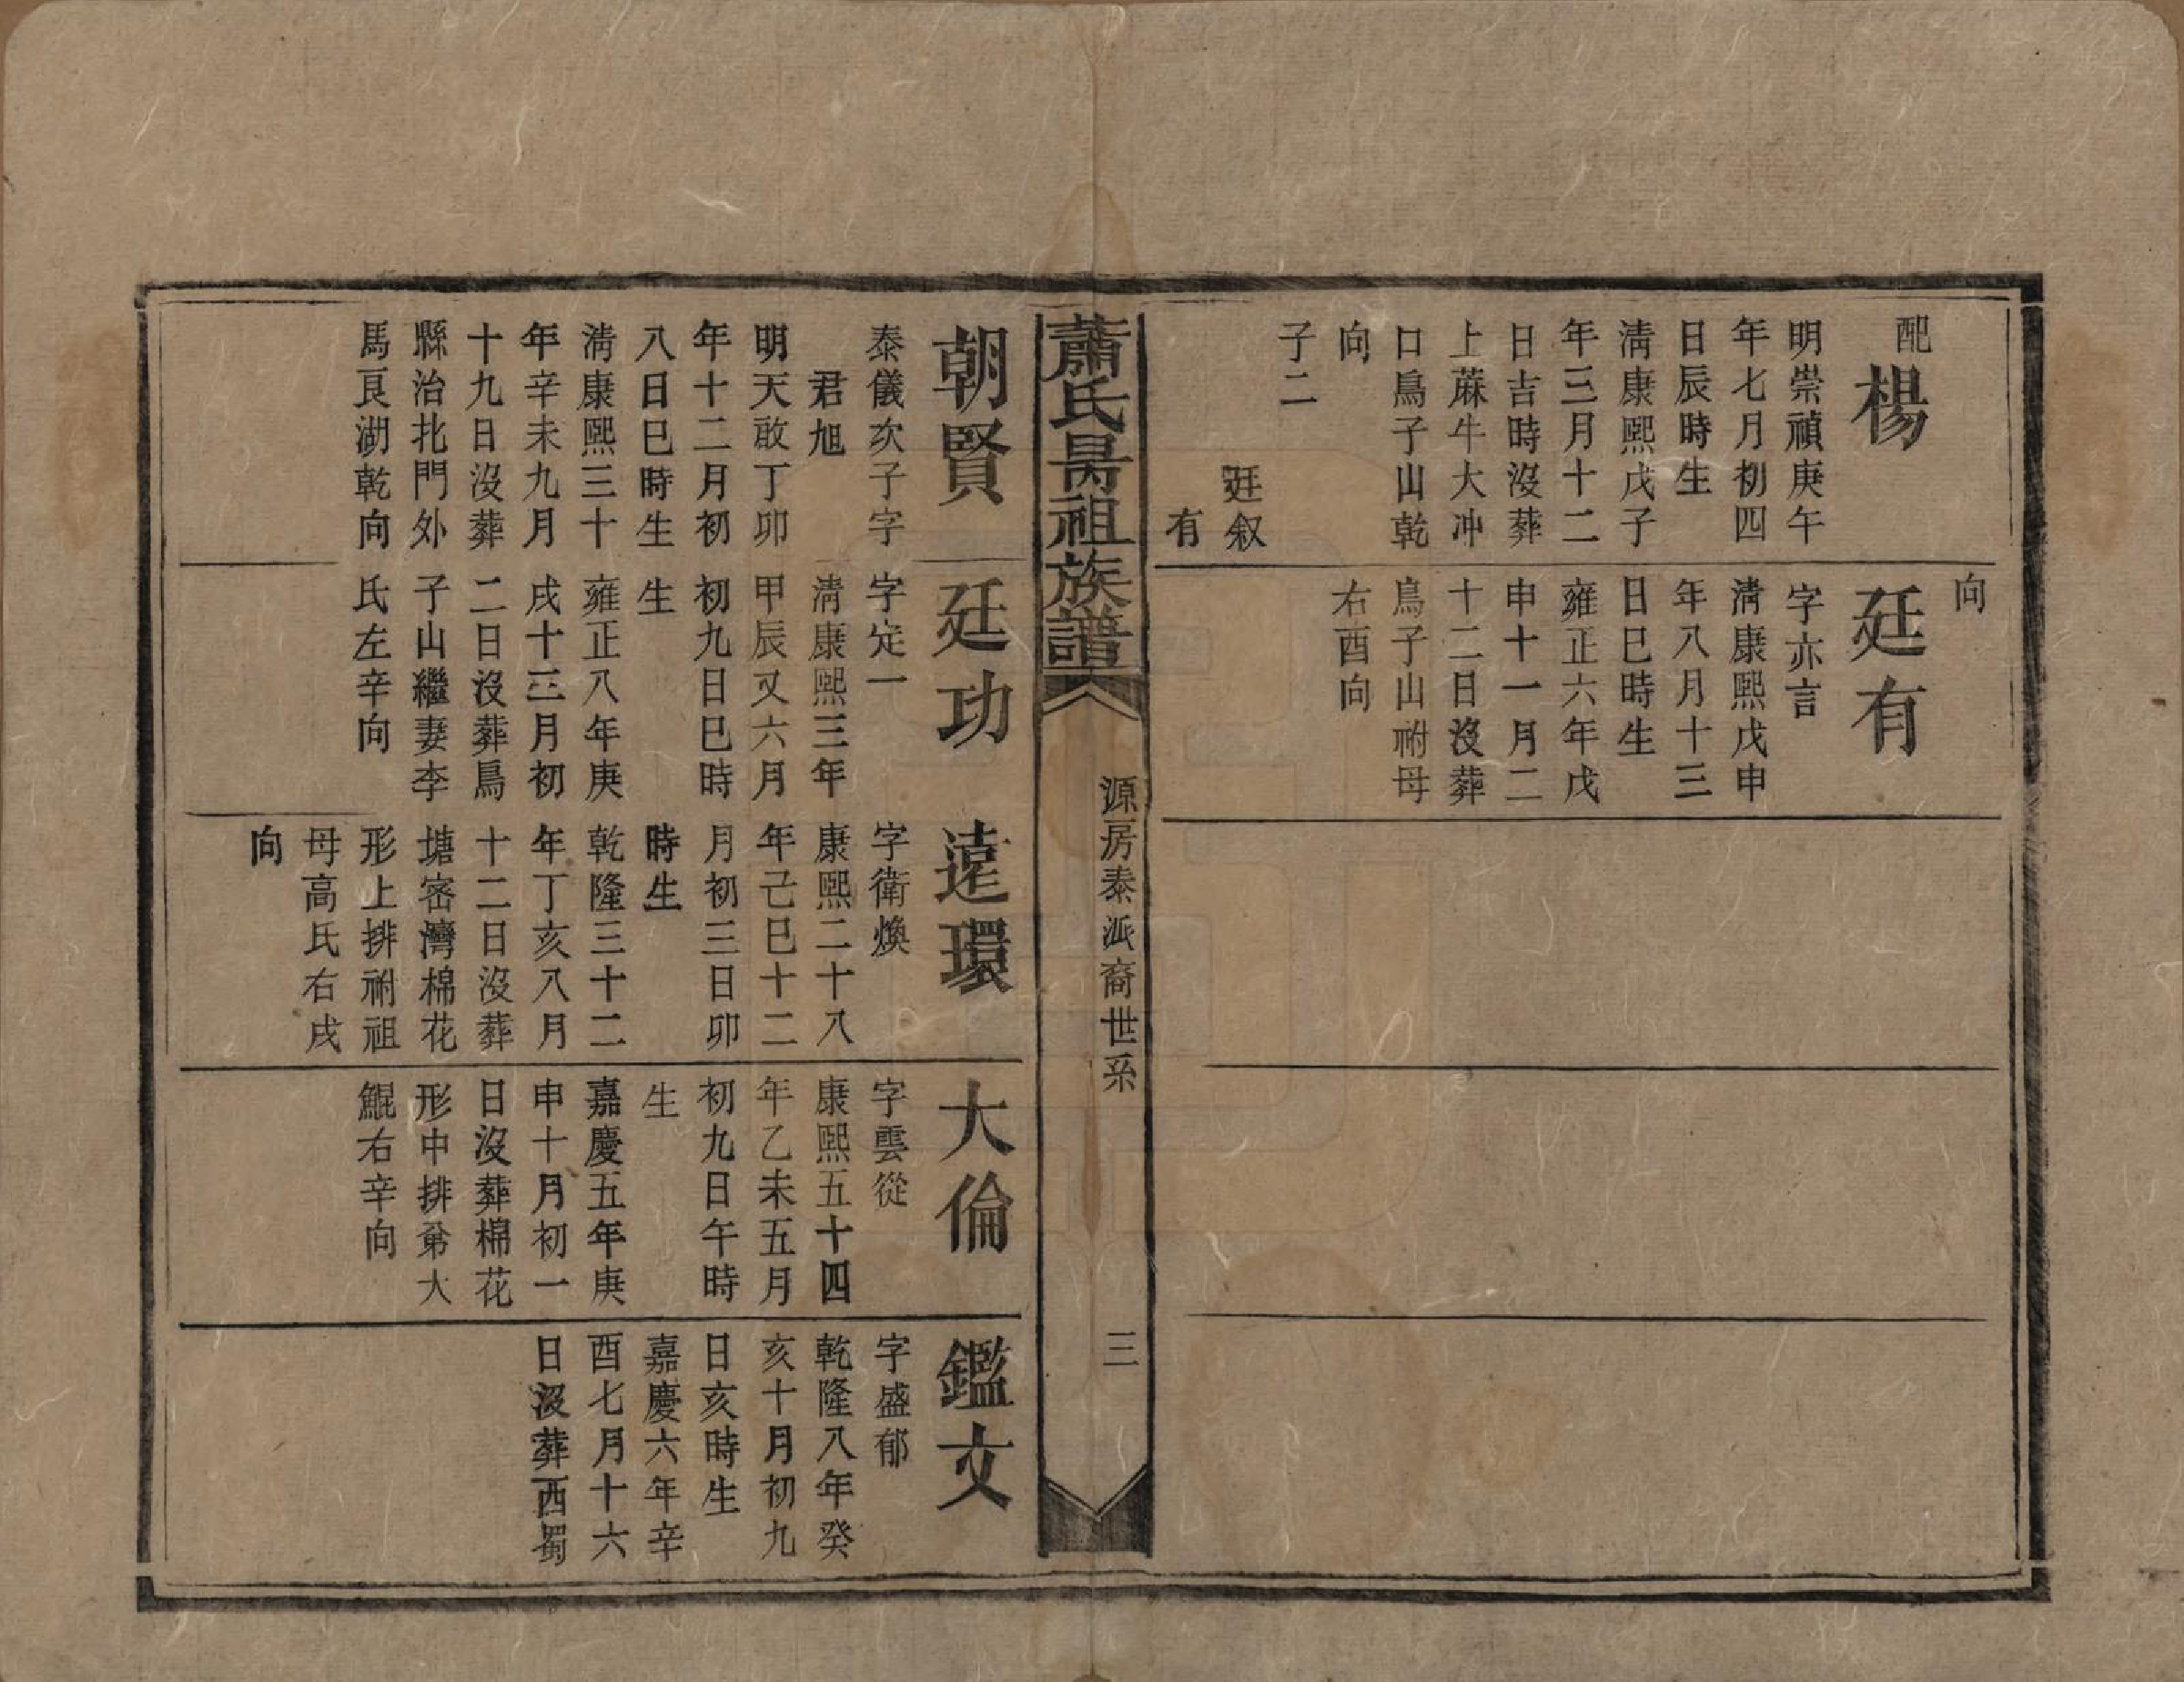 配
楊
明崇禎庚午
年七月初四
日辰時生
清康熙戊子
年三月十二
日吉時沒葬
上蔴牛大冲
口鳥子山乾
向
子二
廷叙
有
向
廷有
字亦言
清康熙戊申
年八月十三
日巳時生
雍正六年戊
申十一月二
十二日沒葬
鳥子山祔母
右酉向
蕭氏昺祖族譜
源房泰派裔世系
三
朝賢
泰儀次子字
君旭
明天啟丁卯
年十二月初
八日巳時生
清康熙三十
年辛未九月
十九日沒葬
縣治北門外
馬良湖乾向
廷功
字定一
清康熙三年
甲辰又六月
初九日巳時
生
雍正八年庚
戌十三月初
二日沒葬鳥
子山繼妻李
氏左辛向
遠環
字衛煥
康熙二十八
年己巳十二
月初三日卯
時生
乾隆三十二
年丁亥八月
十二日沒葬
塘密灣棉花
形上排祔祖
母高氏右戌
向
大倫
字雲從
康熙五十四
年乙未五月
初九日午時
生
嘉慶五年庚
申十月初一
日沒葬棉花
形中排弟大
鯤右辛向
鑑文
字盛郁
乾隆八年癸
亥十月初九
日亥時生
嘉慶六年辛
酉七月十六
日沒葬西蜀